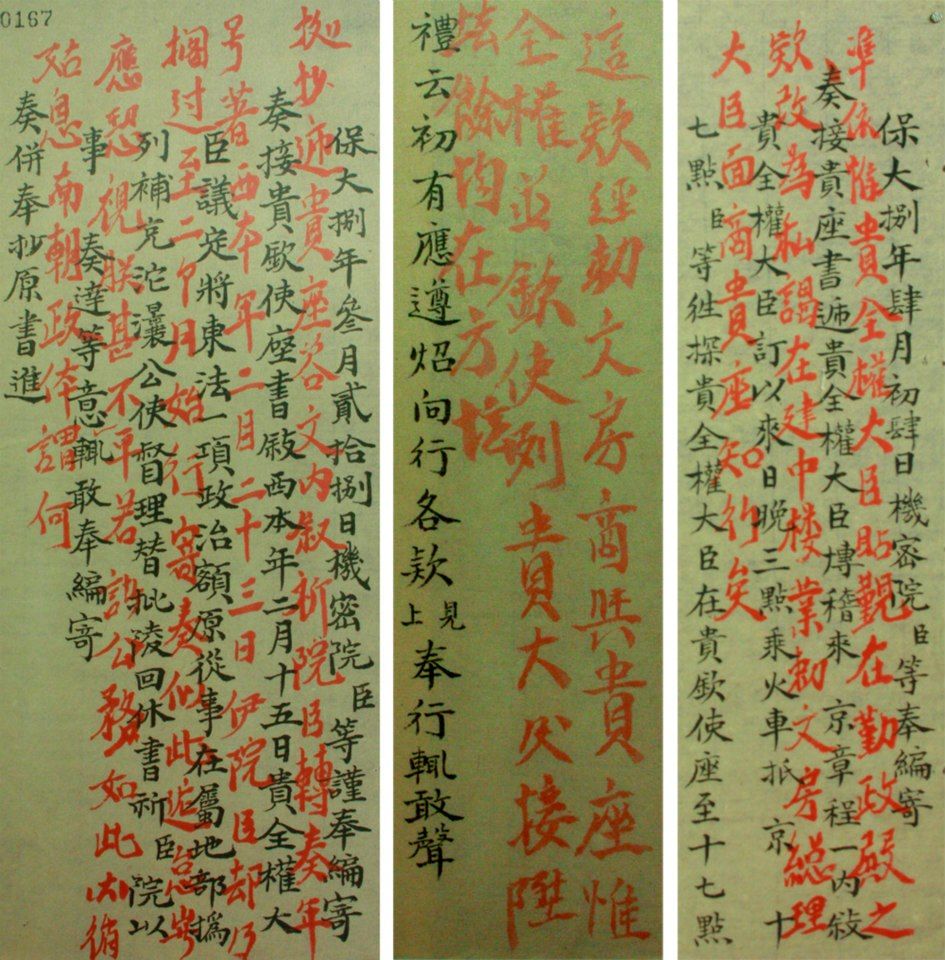 保大捌年肆月初肆日機密院臣等奉編寄
準依惟貴全權大臣貼覲在勤政殿之
奏接貴座書逓貴全權大臣傳稽來京章程一内敍
欵改為私謁在建中楼業勅文房總理
貴全權大臣訂以來日晚三點乘火車抵京十
大臣面商貴座知行矣
七點臣等徃探貴全權大臣在貴欽使座至十七點
這欵經勅文房商與貴座惟
全權並欽使列貴大接陞
餘均在方
禮云初有應遵炤向行各欵見上奉行輒敢聲
保大捌年叄月貳拾捌日機密院臣等謹奉編寄
拠抄逓貴座咨文内叙祈院臣轉奏年
奏接貴欽使座書敍西本年二月十五日貴全權大
号昔西本年二月二十三日伊院臣却乃
臣議定將東法一項政治額原從事在屬地部撝
擱过至二个月始行寄奏似此怠
列補充沱灢公使督理替批陵回休書祈臣院以
應恐視朕甚不單若誤公務如此循
事奏達等意輒敢奉編寄
姑息南朝政体謂何
奏併奉抄原書進
0167